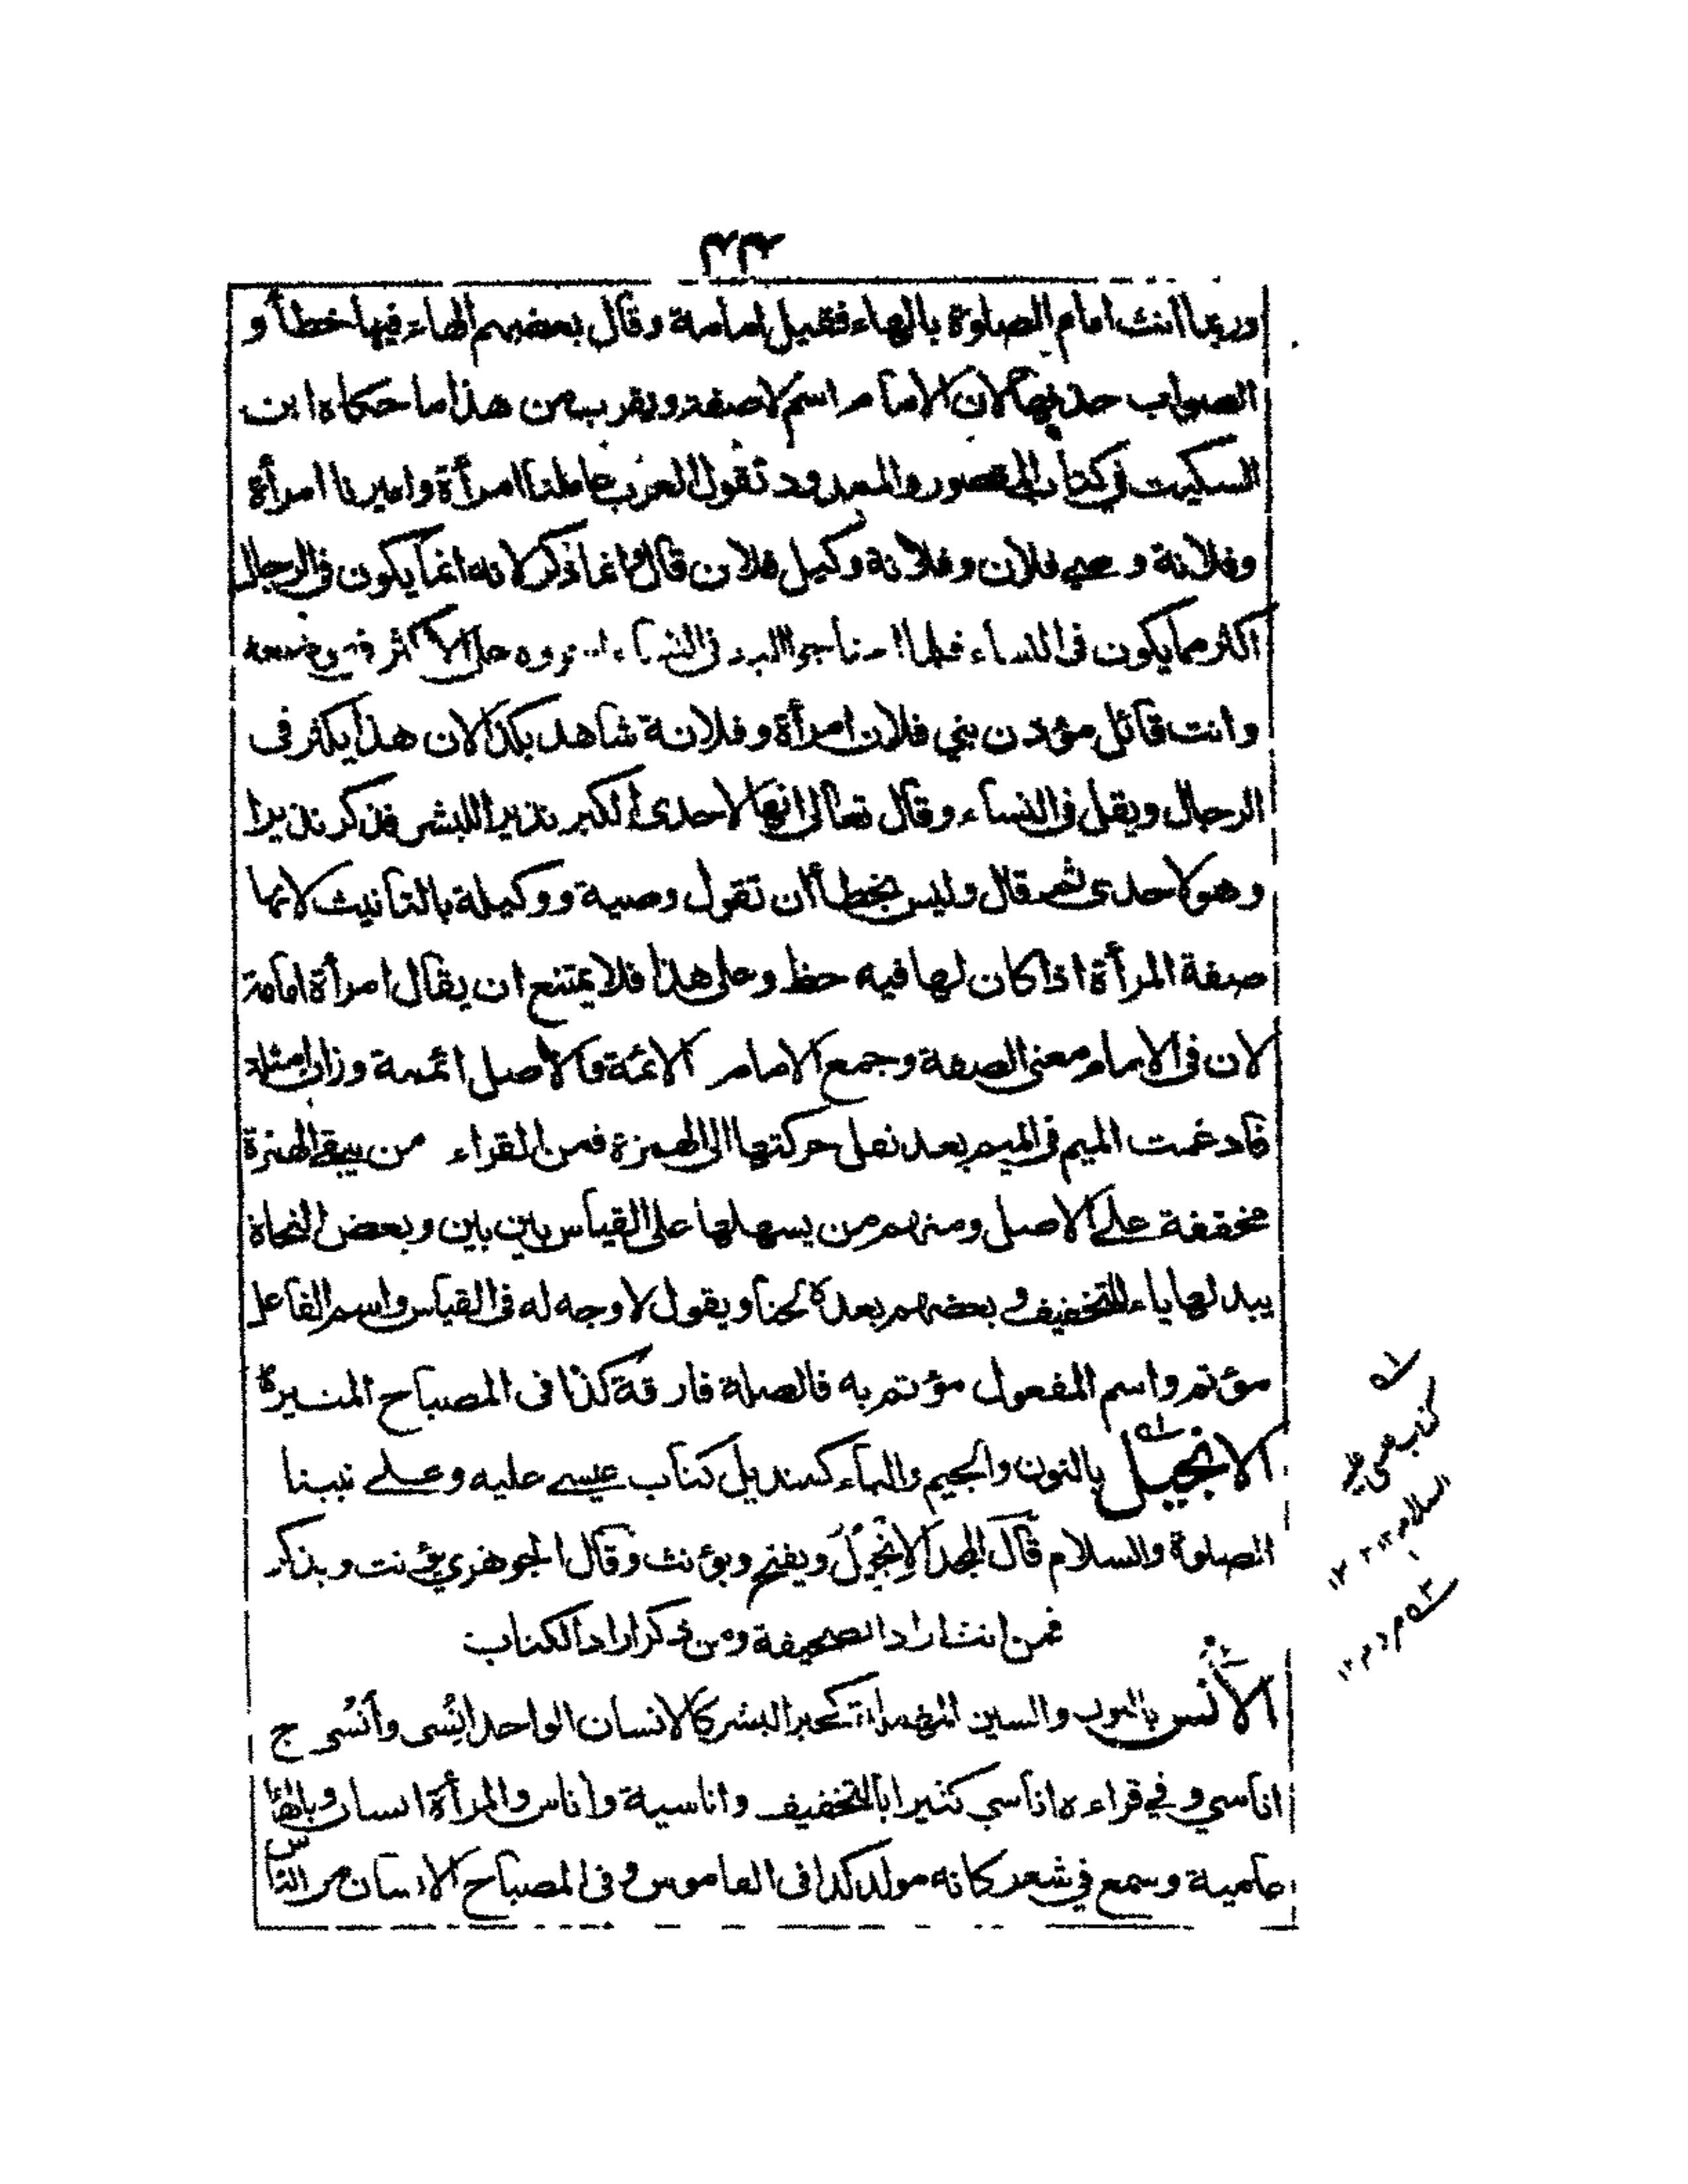 ٣٣
وربما انث امام الصلوة بالهاء فقيل امامة وقال بعضهم الهاء فيها خطأ و
الصواب حذفها لان الامام اسم لا صفة ويقرب من هذا ما حكاه ابن
السكيت في كتاب المقصور والممدود تقول العرب عاملنا امرأة واميرنا امرأة
وفلانة وصي فلان وفلانة وكيل فلان قال وانما ذكر لانه انما يكون في الرجال
اكثر مما يكون في النساء فلما احتاجوا اليه في النساء اجروه على الاكثر في موضعه
وانت قائل مؤذن بني فلان امرأة وفلانة شاهد بكذا لان هذا يكثر في
الرجال ويقل في النساء وقال تعالى انها لاحدى الكبر نذيرا للبشر فذكر نذيرا
وهو لاحدى ثم قال وليس بخطأ ان تقول وصية ووكيلة بالتانيث لانها
صفة المرأة اذا كان لها فيه حظ وعلى هذا فلا يمتنع ان يقال امرأة امامة
لان في الامام معنى الصفة وجمع الامام الائمة والاصل ائممة وزان امثلة
فادغمت الميم في الميم بعد نقل حركتها الى الهمزة فمن القراء من يبقي الهمزة
مخففة على الاصل ومنهم من يسهلها على القياس بين بين وبعض النحاة
يبدلها ياء للتخفيف و بعضهم يعده لحنا ويقول لا وجه له في القياس واسم الفاعل
مؤتم واسم المفعول مؤتم به فالصلة فارقة كذا في المصباح المنيرة
الانجيل بالنون والجيم والياء كسنديل كتاب عيسى عليه وعلى نبينا
الصلوة والسلام قال المجد الإنْجِيْلُ ويفتح ويؤنث وقال الجوهري يؤنث ويذكر
فمن انث اراد الصحيفة ومن ذكر اراد الكتاب
الانس بالنون والسين المهملة كحبر البشر كالانسان الواحد اِنْسى وأنَسى ج
اناسي و في قراءه اناسي كثيرا بالتخفيف واناسية واناس والمرأة انسان وبالهاء
عامية وسمع في شعر كانه مولد كذا في القاموس و في المصباح الانسان من الناس